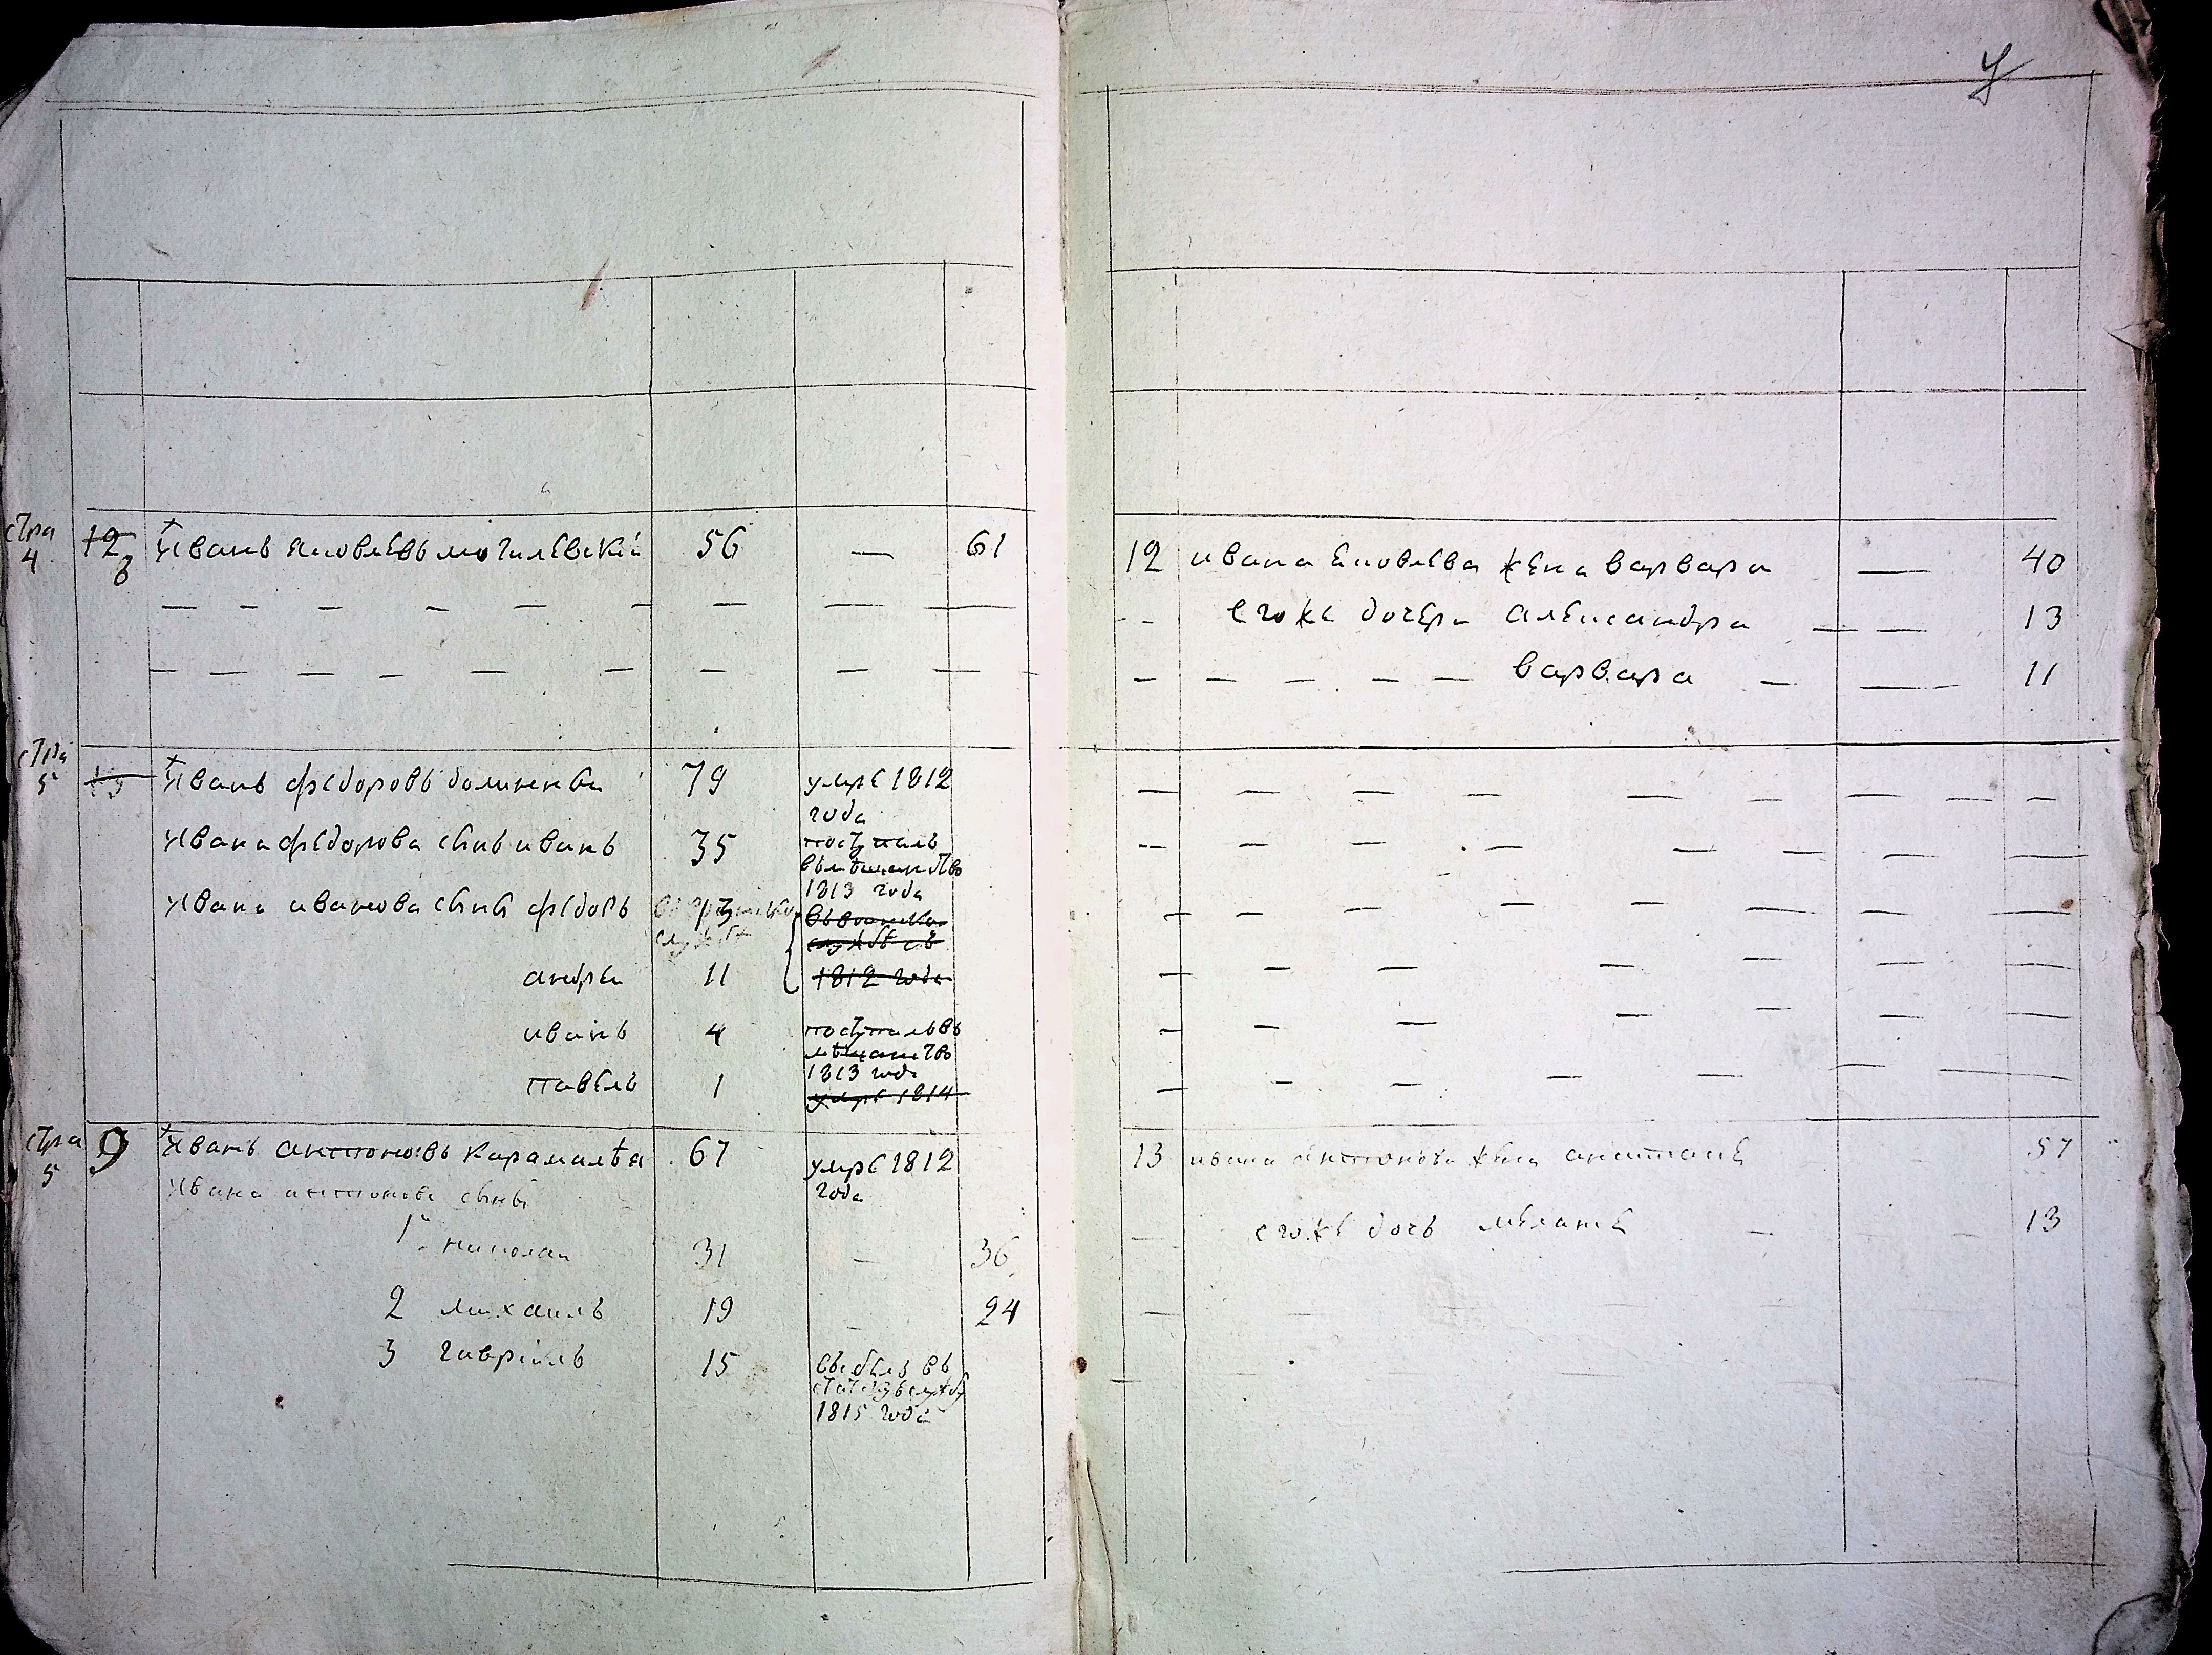 стра
4
12 8 Иванъ Яковлевъ могилевскій 56 — 61
стра
5
13 Иванъ федоровъ 79 умре 1812
года
Ивана федорова сынъ иванъ 35 поступилъ
въ мещанство
1813 года
Ивана иванова сынъ федоръ
службѣ
службѣ съ
андреи 11 1812 года
иванъ 4 поступилъ въ
мещанство
1813 года
павелъ 1 умре 1814
стра
5
9 Иванъ антоновъ Карамалѣя 67 умре 1812
года
Ивана антонова сыны
1й николаи 31 — 36
2 михаилъ 19 — 24
3 гавріилъ 15 въ
службу
1815 года
12 ивана Яковлева жена варвара — 40
егоже дочери александра — — 13
варвара — — 11
13 ивана антонова жена 57
егоже дочь — 13